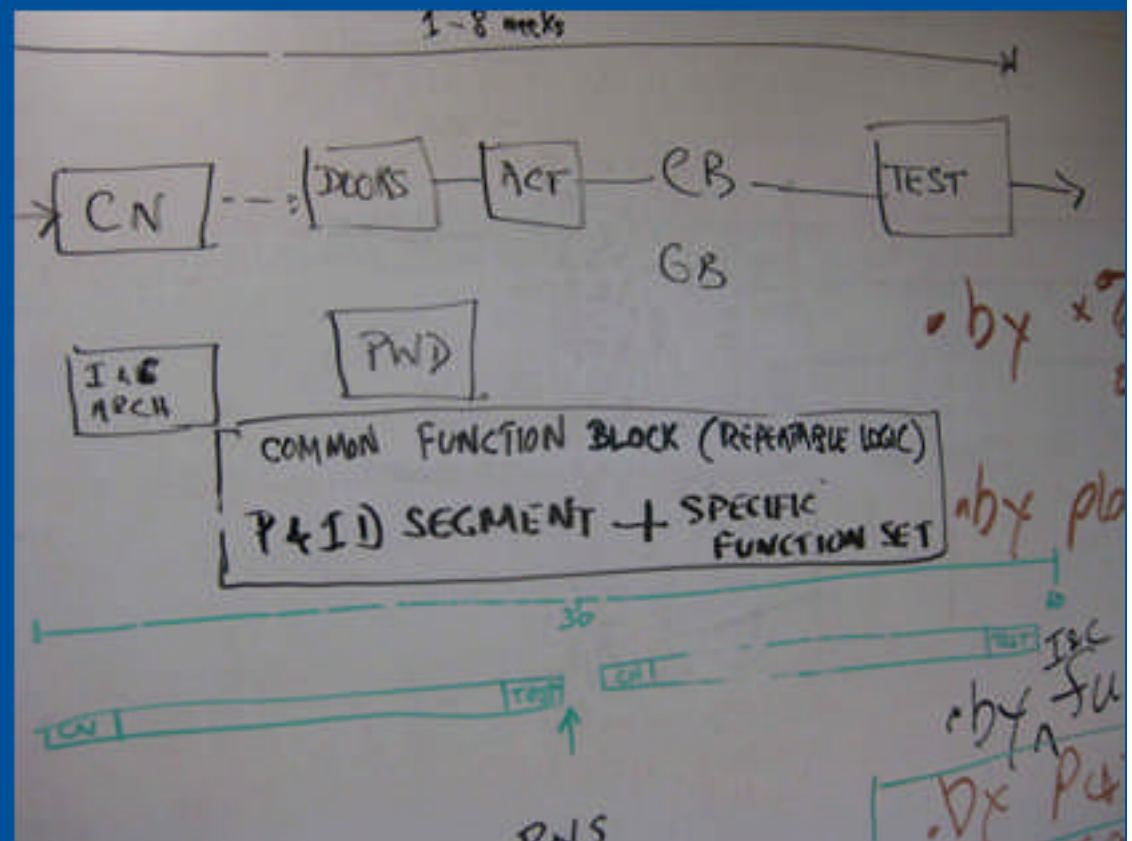 1-8 weeks
CN
DOORS
ACT
CB
TEST
GB
• by x
PWD
I & C
ARCH
COMMON FUNCTION BLOCK (REPEATABLE LOGIC)
P&ID SEGMENT + SPECIFIC
FUNCTION SET
•by
30
CN
TEST
CN
TEST
I&C
•by fu
•by P&